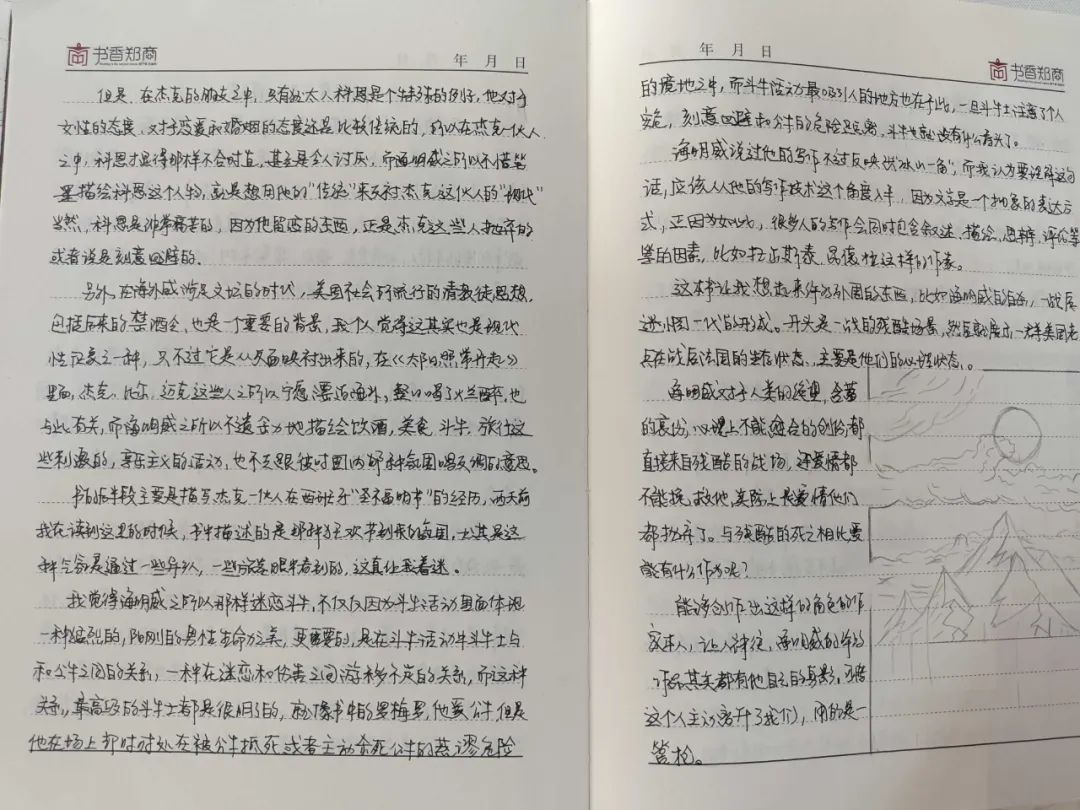 书香郑商
年 月 日
但是,在杰克的朋友之中,只有犹太人科恩是个特殊的例子,他对于
女性的态度、对于恋爱和婚姻的态度还是比较传统的,所以在杰克一伙人
之中,科恩才显得那样不合时宜,甚至是令人讨厌,而海明威之所以不惜笔
墨描绘科恩这个人物,就是想用他的“传统”来反衬杰克这伙人的“现代”
当然,科恩是非常痛苦的,因为他留恋的东西,正是杰克这些人抛弃的
或者说是刻意回避的。
另外,在海明威涉足文坛的时代,美国社会所流行的清教徒思想,
包括后来的禁酒令,也是一个重要的背景,我个人觉得这其实也是现代
性反衬之一种,只不过它是从反面映衬出来的,在《太阳照常升起》
里面,杰克、比尔、迈克这些人之所以宁愿漂泊海外,整日喝了烂醉,也
与此有关,而海明威之所以不遗余力地描绘饮酒,美食,斗牛,旅行这
些刺激的,享乐主义的活动,也不乏跟彼时国内那种氛围唱反调的意思。
书的后半段主要是描写杰克一伙人在西班牙“圣福明节”的经历,两天前
我在读到这里的时候,书中描述的是那种狂欢节到来的氛围,尤其是这
种气氛是通过一些导火,一些旅途眼中看到的,这真让我着迷。
我觉得海明威之所以那样迷恋斗牛,不仅仅因为斗牛活动里面体现
一种猛烈的,阳刚的男性生命力之美,更重要的,是在斗牛活动中斗牛士与
和公牛之间的关系,一种在迷恋和伤害之间游移不定的关系,而这种
关系,最高级的斗牛士都是很明了的,就像书中的罗梅罗,他爱公牛,但是
他在场上却时时处在被公牛抵死或者主动杀死公牛的荒谬危险
年 月 日
书香郑商
的境地之中,而斗牛活动最吸引人的地方也在于此,一旦斗牛士注意了个人
安危,刻意回避和公牛的危险距离,斗牛也就没有什么看头了。
海明威说过他的写作不过反映出“冰山一角”,而我认为要理解这句
话,应该从他的写作技术这个角度入手,因为文字是一个抽象的表达方
式,正因为如此,很多人的写作会同时包含叙述、描绘、思辨、评论等
等的因素,比如托尔斯泰、昆德拉这样的作家。
这本书让我想起来许多外国的东西,比如海明威的自然,一战后
迷惘一代的形成。开头是一战的残酷场景,然后就展示一群美国老
兵在战后法国的生存状态、主要是他们的心理状态。
海明威对于人类的绝望,含蓄
的哀伤,心理上不能愈合的创伤,都
直接来自残酷的战场,连爱情都
不能挽救他,实际上,我爱情他们
都抛弃了。与残酷的死亡相比爱
能有什么作为呢?
能够创作出这样的角色的作
家本人,让人神往,海明威的每部
作品其实都有他自己的身影,可惜
这个人主动离开了我们,用的是一
管枪。